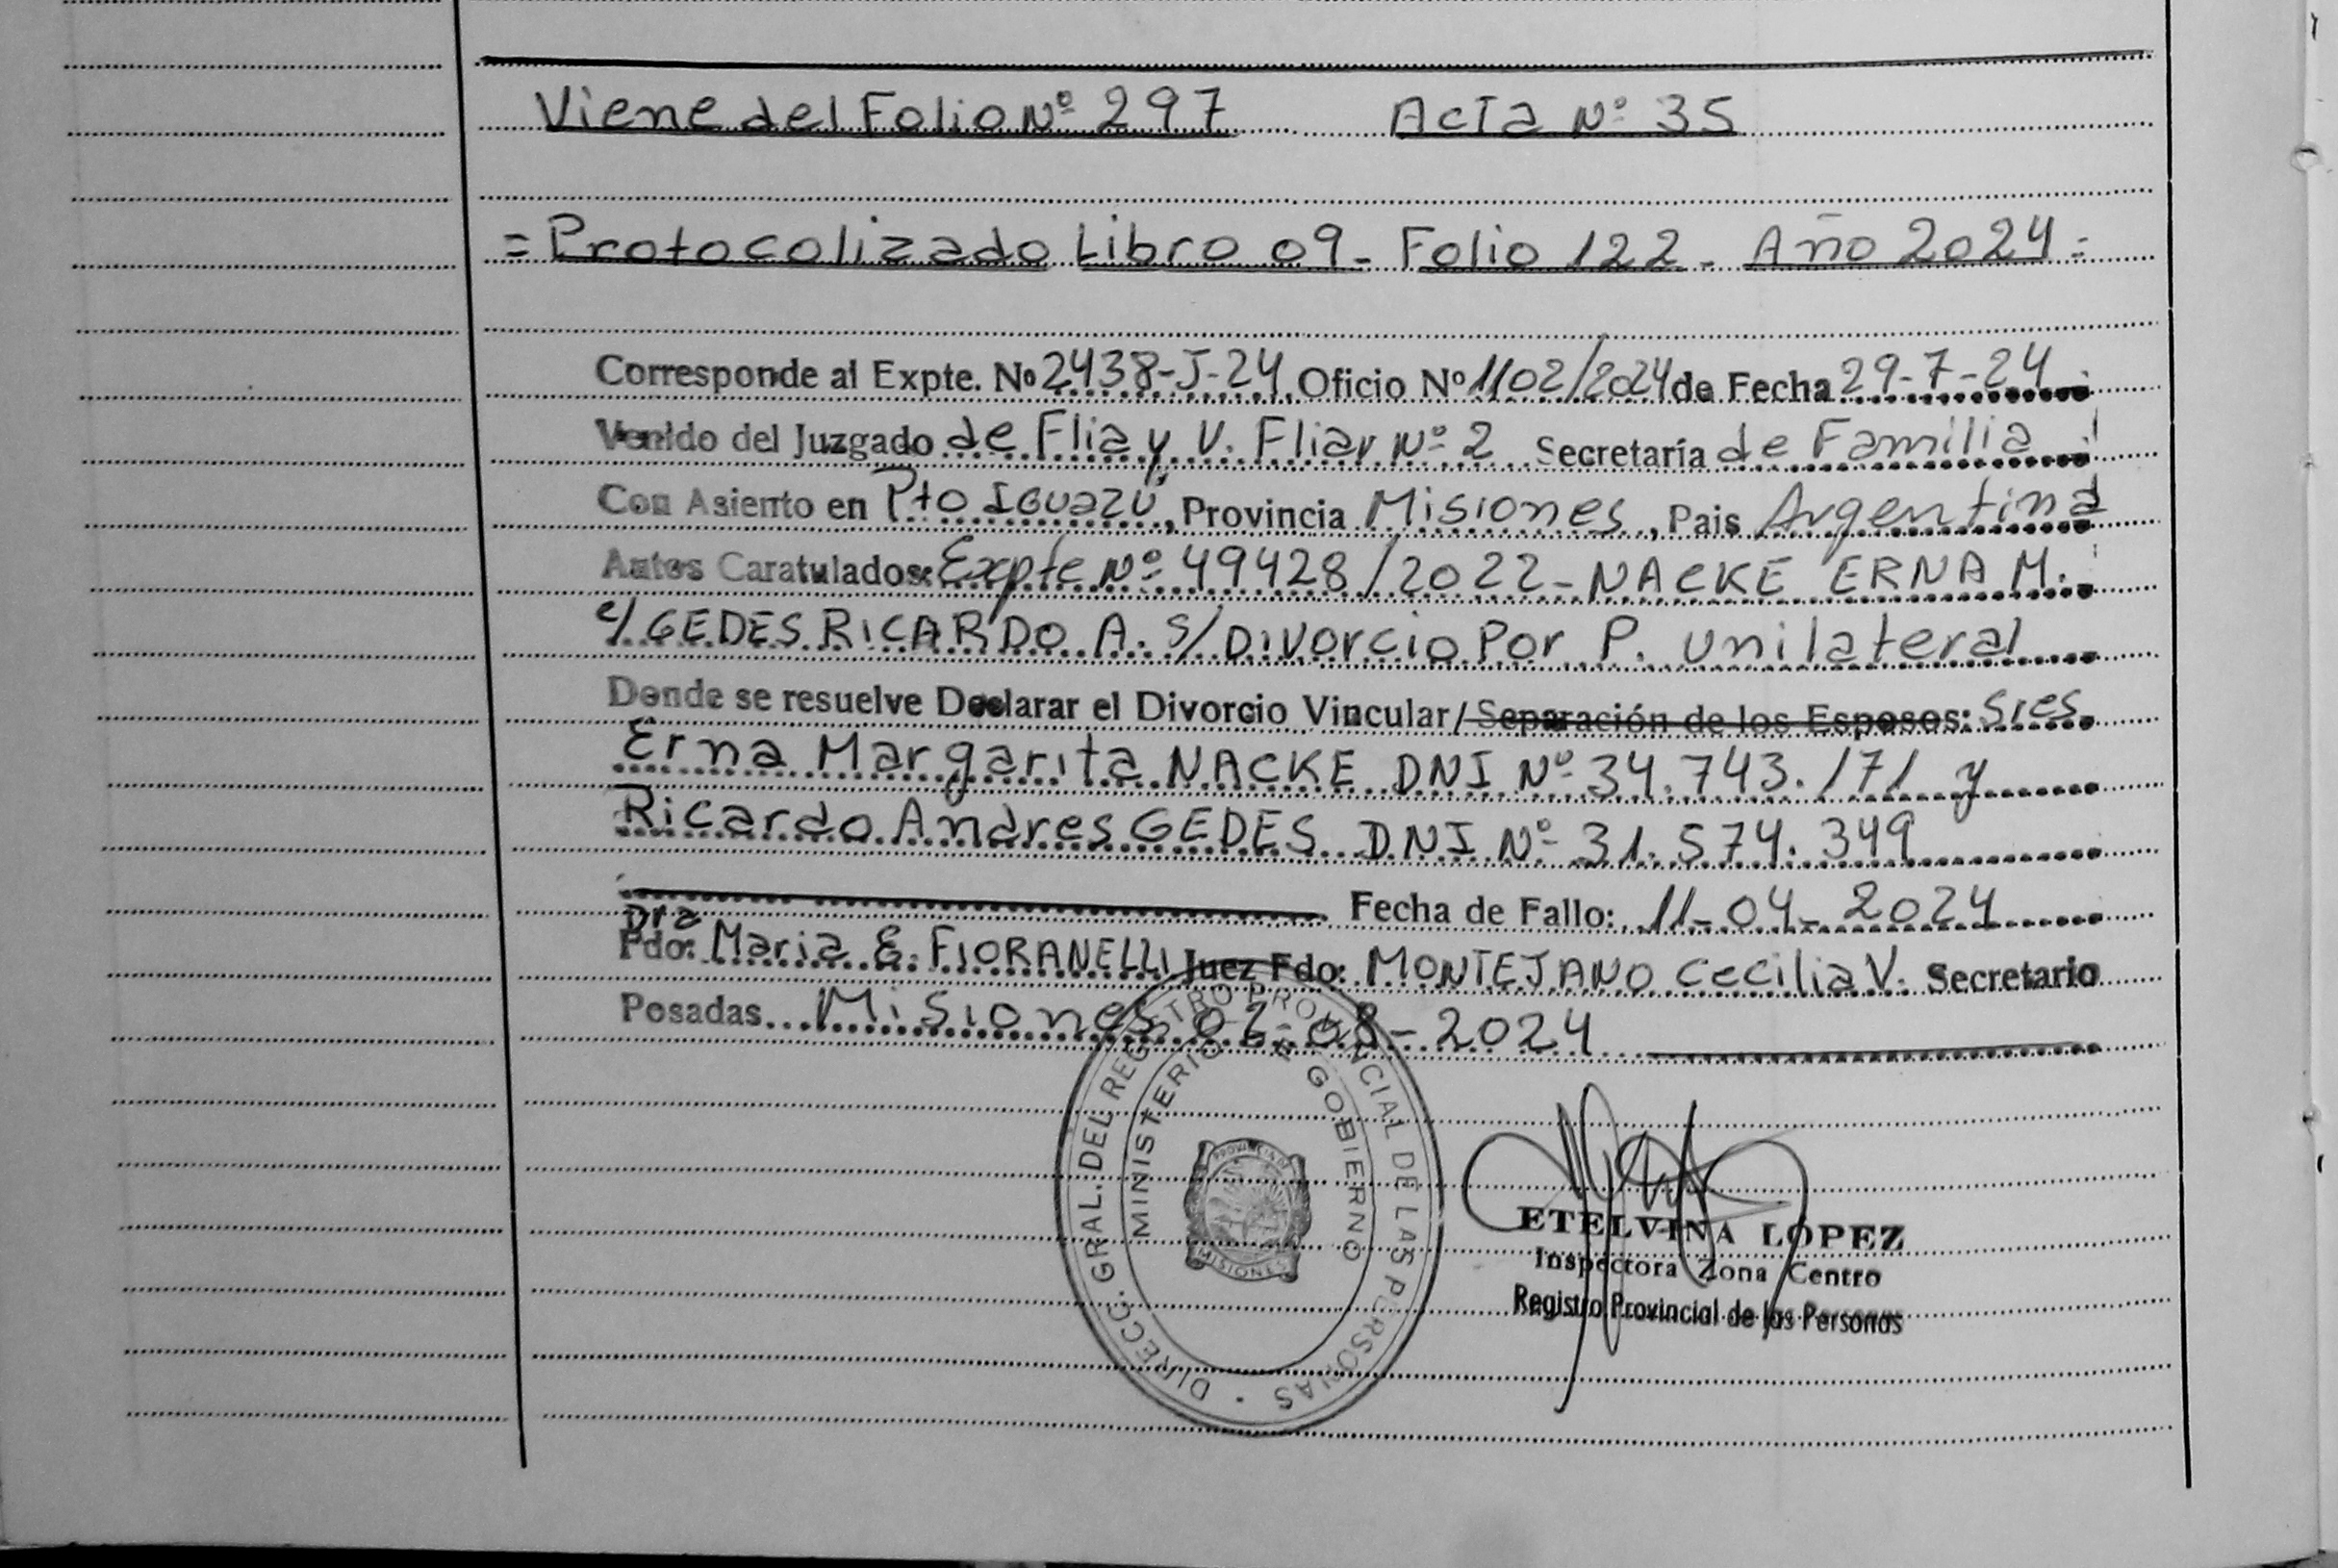 Viene del Folio Nº 297 Acta Nº 35
= Protocolizado Libro 09 - Folio 122 - Año 2024 =
Corresponde al Expte. Nº 2438-J-24 Oficio Nº 1102/2024 de Fecha 29-7-24
Venido del Juzgado de Flia y V. Fliar Nº 2 Secretaría de Familia
Con Asiento en Pto Iguazú, Provincia Misiones, Pais Argentina
Autos Caratulados: Expte Nº 49428/2022 - NACKE ERNA M.
c/ GEDES RICARDO A. s/ Divorcio Por P. unilateral
Donde se resuelve Declarar el Divorcio Vincular / Separación de los Esposos: Sres.
Erna Margarita NACKE DNI Nº 34.743.171 y
Ricardo Andres GEDES DNI Nº 31.574.349
Fecha de Fallo: 11-04-2024
Dra
Fdo: Maria E. FIORANELLI Juez Fdo: MONTEJANO Cecilia V. Secretario
Posadas Misiones 02-08-2024
DIRECC. GRAL. DEL REGISTRO PROVINCIAL DE LAS PERSONAS
MINISTERIO DE GOBIERNO
PROVINCIA DE
MISIONES
ETELVINA LOPEZ
Inspectora Zona Centro
Registro Provincial de las Personas